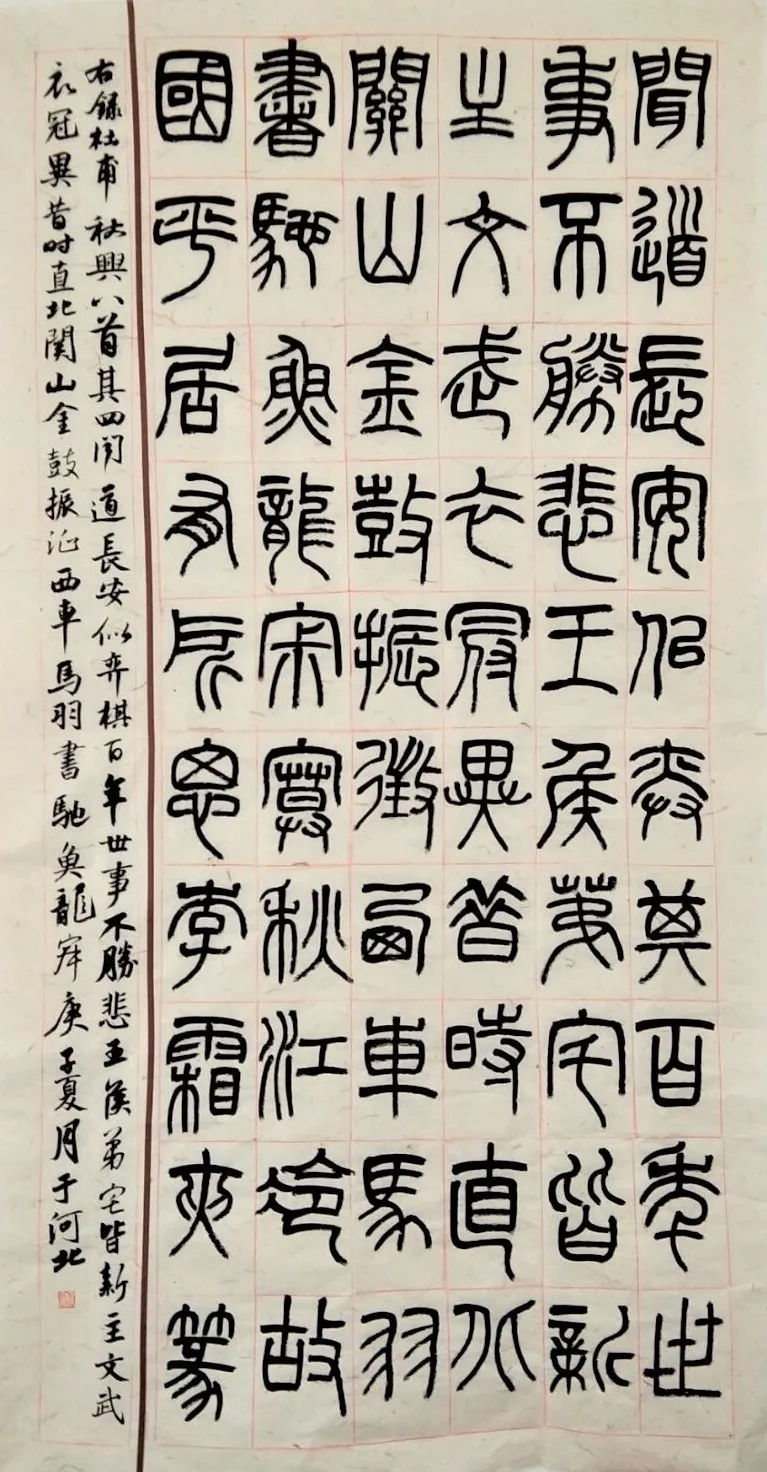 聞道長安佀弈其百年世
事不勝悲王侯苐宅皆新
主文武衣冠異昔時直北
關山金鼓振徵西車馬羽
書馳魚龍寂寞秋江冷故
國平居有所思李霜爽篆
右録杜甫秋興八首其四聞道長安似弈棋百年世事不勝悲王侯弟宅皆新主文武
衣冠異昔时直北関山金鼓振征西車馬羽書馳魚龍寂庚子夏月于河北